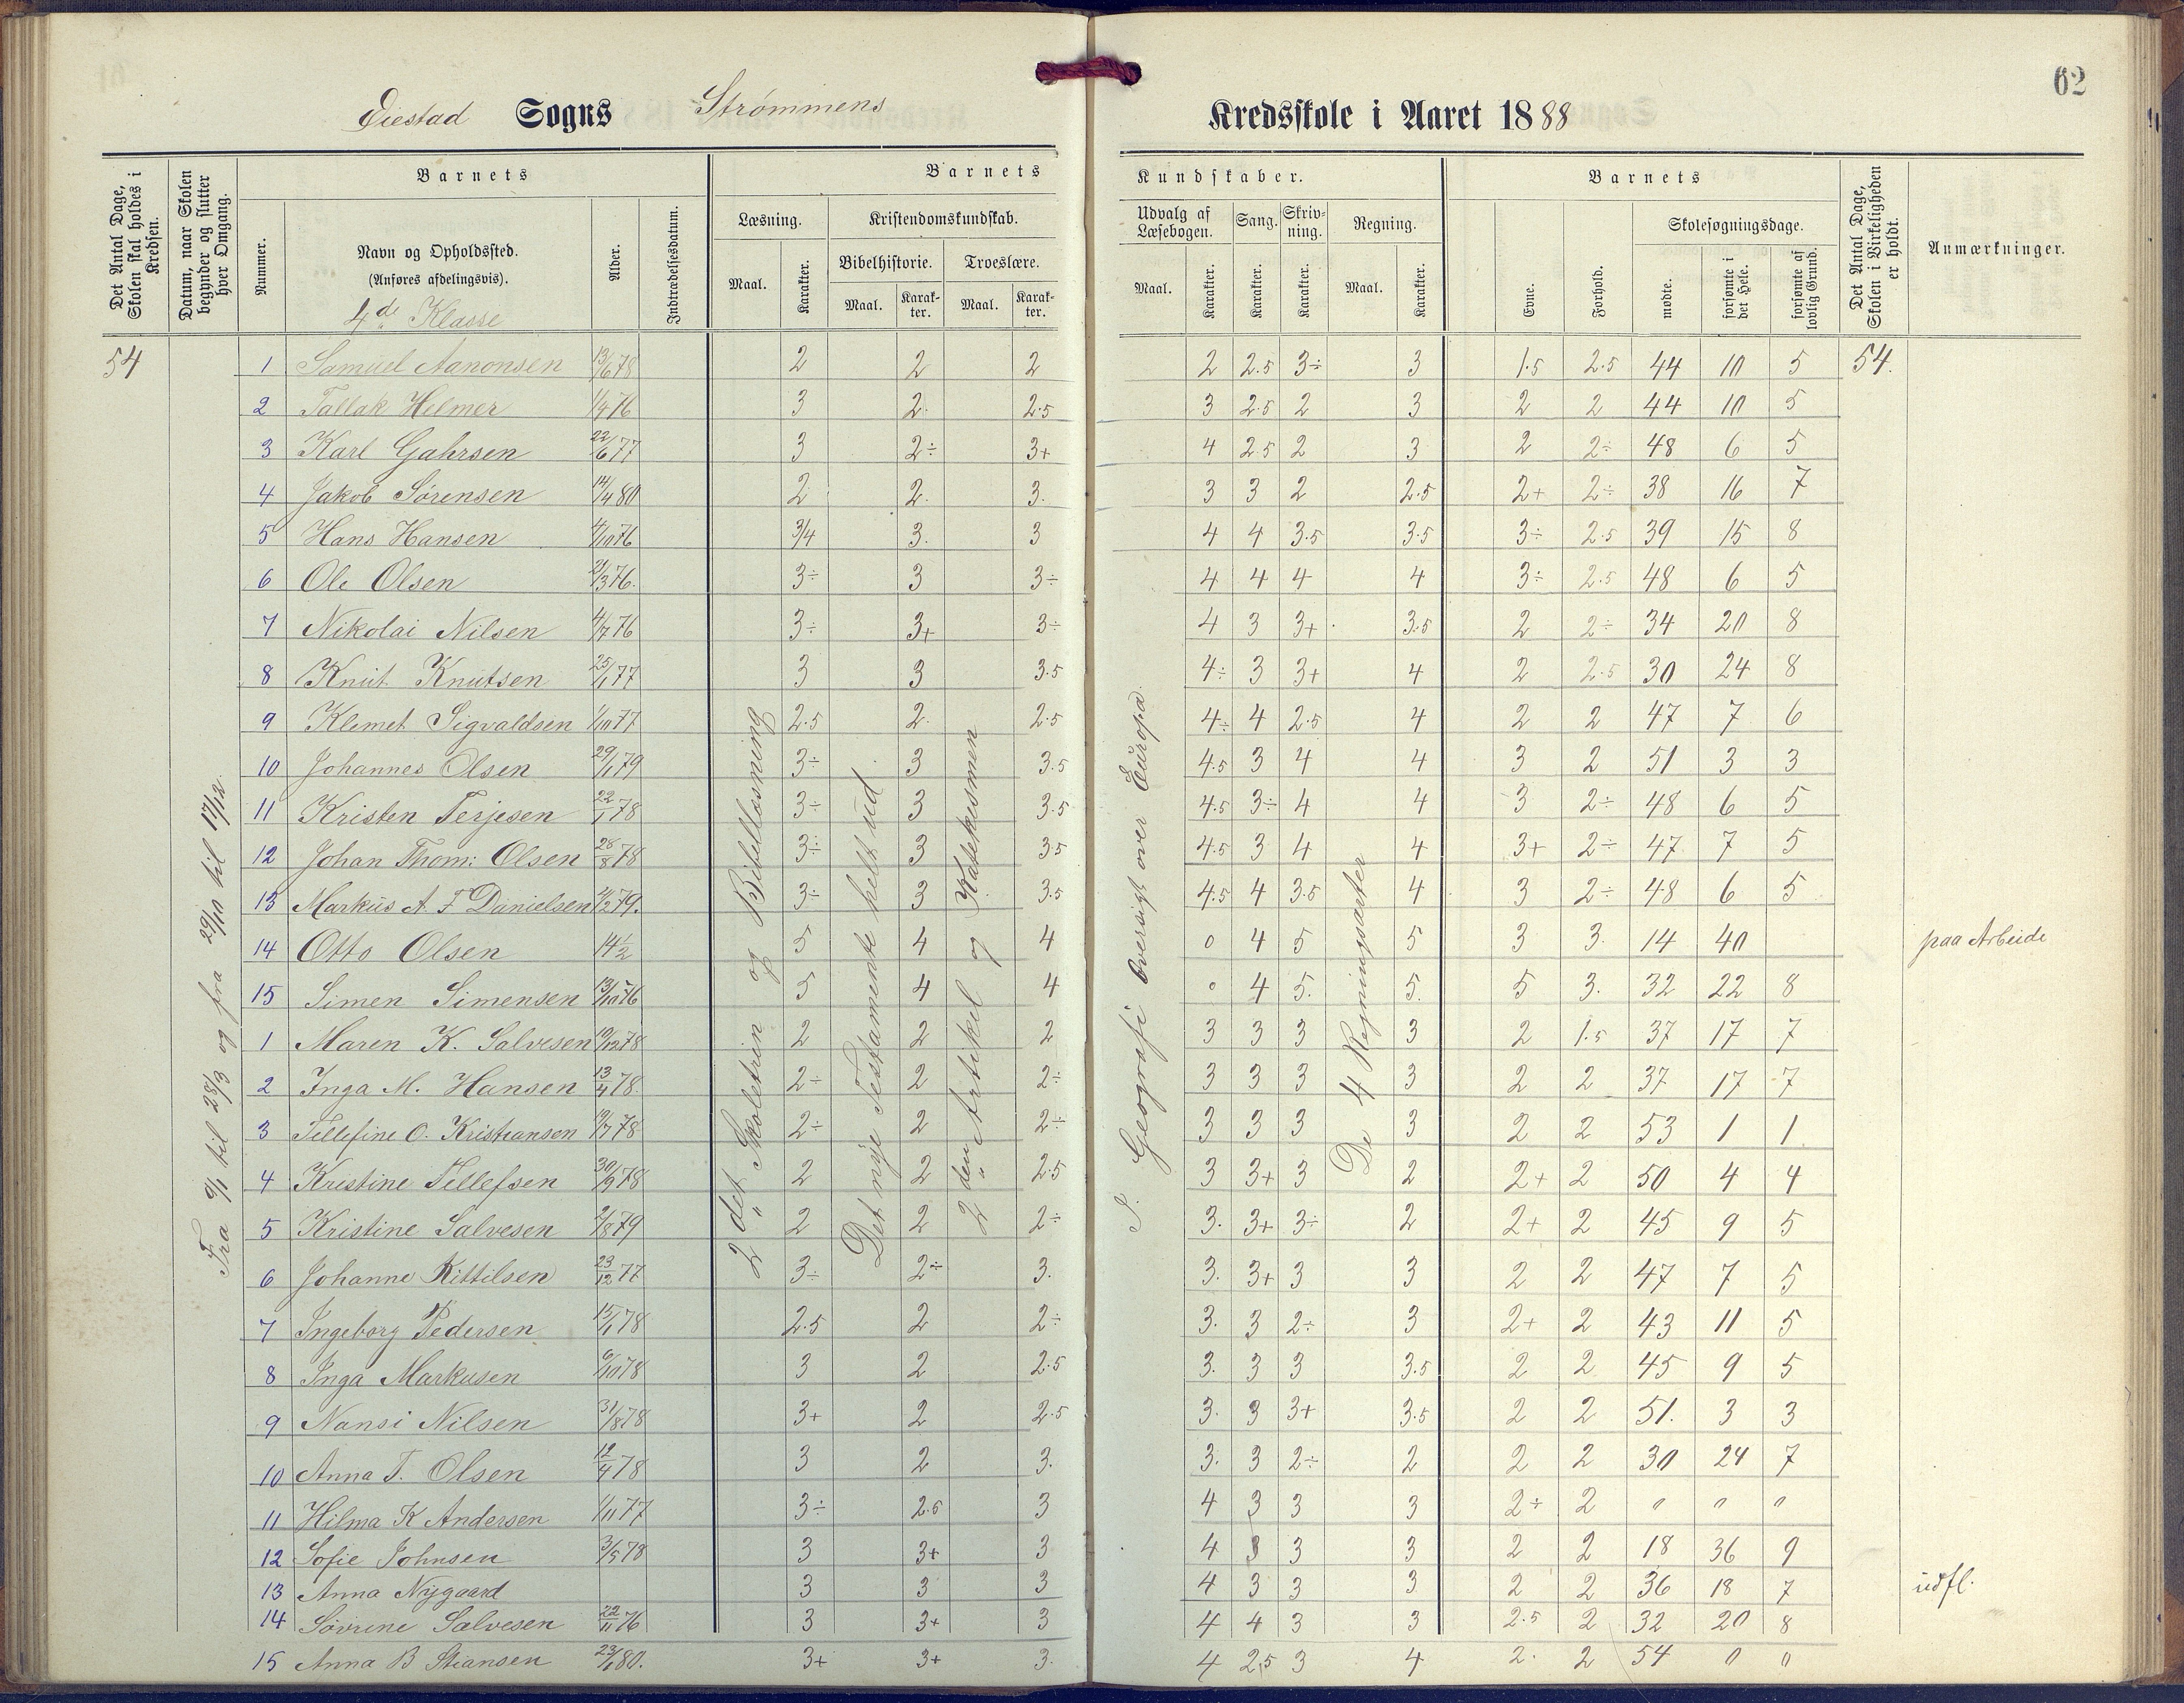 62
Eiestad Sogns Strømmens Kredsskole i Aaret 1888
Det Antal Dage, Skolen skal holdes i Kredsen.
Datum, naar Skolen begynder og slutter hver Omgang.
Barnets
Nummer.
Navn og Opholdssted.
(Anføres afdelingsvis).
4de Klasse
Alder.
Indtrædelsesdatum.
Barnets Kundskaber.
Læsning.
Maal. Karakter.
Kristendomskundskab.
Bibelhistorie. Troeslære.
Maal. Karakter. Maal. Karakter.
Udvalg af Læsebogen. Sang. Skrivning. Regning.
Maal. Karakter. Karakter. Karakter. Maal. Karakter.
Barnets
Evne. Forhold.
Skolesøgningsdage.
mødte. forsømte i det Hele. forsømte af lovlig Grund.
Det Antal Dage, Skolen i Virkeligheden er holdt.
Anmærkninger.
54
Fra 9/1 til 28/3 og fra 29/10 til 17/12.
2det Skoletrin og Bibellæsning
Det nye Testamente helt ud
2den Artikel og Katekesmen
I. Geografi Oversigt over Europa.
De 4 Regningsarter
1 Samuel Aanonsen 13/6 78 2 2 2 2 2.5 3÷ 3 1.5 2.5 44 10 5 54.
2 Tallak Helmer 1/4 76 3 2 2.5 3 2.5 2 3 2 2 44 10 5
3 Karl Gahrsen 22/6 77 3 2÷ 3+ 4 2.5 2 3 2 2÷ 48 6 5
4 Jakob Sørensen 14/4 80 2 2. 3. 3 3 2 2.5 2+ 2÷ 38 16 7
5 Hans Hansen 4/10 76 3/4 3. 3 4 4 3.5 3.5 3÷ 2.5 39 15 8
6 Ole Olsen 21/3 76. 3÷ 3 3÷ 4 4 4 4 3÷ 2.5 48 6 5
7 Nikolai Nilsen 4/7 76 3÷ 3+ 3÷ 4 3 3+ 3.5 2 2÷ 34 20 8
8 Knut Knutsen 25/1 77 3 3 3.5 4÷ 3 3+ 4 2 2.5 30 24 8
9 Klemet Sigvaldsen 1/10 77 2.5 2. 2.5 4÷ 4 2.5 4 2 2 47 7 6
10 Johannes Olsen 29/1 79 3÷ 3 3.5 4.5 3 4 4 3 2 51 3 3
11 Kristen Terjesen 22/1 78 3÷ 3 3.5 4.5 3÷ 4 4 3 2÷ 48 6 5
12 Johan Thom: Olsen 28/8 78 3÷ 3 3.5 4.5 3 4 4 3+ 2÷ 47 7 5
13 Markus A. F Danielsen 21/2 79. 3÷ 3 3.5 4.5 4 3.5 4 3 2÷ 48 6 5
14 Otto Olsen 14 1/2 5 4 4 0 4 5 5 3 3 14 40 paa Arbeide
15 Simen Simensen 13/10 76 5 4 4 0 4 5. 5. 5 3. 32 22 8
1 Maren K. Salvesen 10/12 78 2 2 2 3 3 3 3 2 1.5 37 17 7
2 Inga M. Hansen 13/4 78. 2÷ 2 2÷ 3 3 3 3 2 2 37 17 7
3 Tellefine O. Kristiansen 19/7 78 2÷ 2 2÷ 3 3 3 3 2 2 53 1 1
4 Kristine Tellefsen 30/9 78 2 2 2.5 3 3+ 3 2 2+ 2 50 4 4
5 Kristine Salvesen 2/8 79 2 2 2÷ 3. 3+ 3÷ 2 2+ 2 45 9 5
6 Johanne Kittilsen 23/12 77 3÷ 2÷ 3. 3. 3+ 3 3 2 2 47 7 5
7 Ingeborg Pedersen 15/1 78 2.5 2 2÷ 3. 3 2÷ 3 2+ 2 43 11 5
8 Inga Markusen 6/10 78 3 2 2.5 3. 3 3 3.5 2 2 45 9 5
9 Nansi Nilsen 31/8 78 3+ 2 2.5 3. 3 3+ 3.5 2 2 51. 3 3
10 Anna T. Olsen 12/4 78 3 2 3. 3. 3 2÷ 2 2 2 30 24 7
11 Hilma K Andersen 1/11 77 3÷ 2.5 3 4 3 3 3 2÷ 2 0 0 0
12 Sofie Johnsen 3/5 78 3 3+ 3 4 3 3 3 2 2 18 36 9
13 Anna Nygaard 3 3 3 4 3 3 3 2 2 36 18 7 udfl.
14 Søvrine Salvesen 22/11 76 3 3+ 3 4 4 3 3 2.5 2 32 20 8
15 Anna B Stiansen 23/1 80. 3+ 3+ 3. 4 2,5 3 4 2. 2 54 0 0